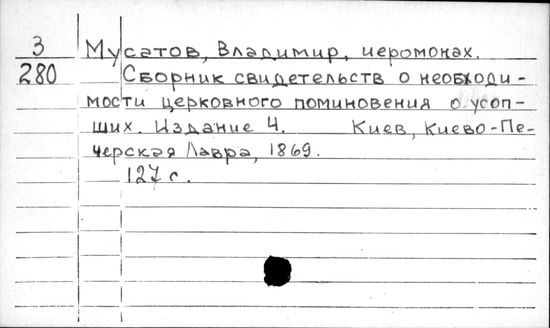 3 Мусатов, Владимир, иеромонах.
280 Сборник свидетельств о необходи-
мости церковного поминовения о усоп-
ших. Издание 4. Киев, Киево-Пе-
черская Лавра, 1869.
127 с.